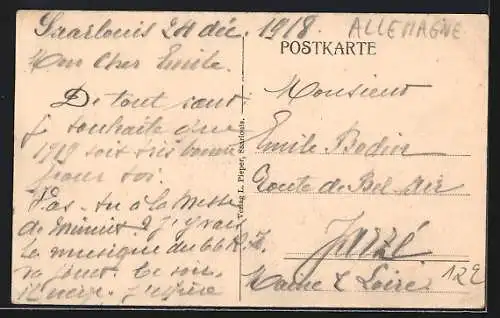 Saarlouis 24 déc. 1918
Mon cher Emile.
De tout cœur
je souhaite que
1919 soit très bonne
pour toi.
Vas-tu à la Messe
de Minuit ? J'y vais
la musique du 66 R.I.
va jouer. Ce soir
il neige. J'espère
ALLEMAGNE
POSTKARTE
Verlag L. Pieper, Saarlouis.
Monsieur
Emile Bodin
Route de Bel Air
Jarzé
Maine & Loire
12€